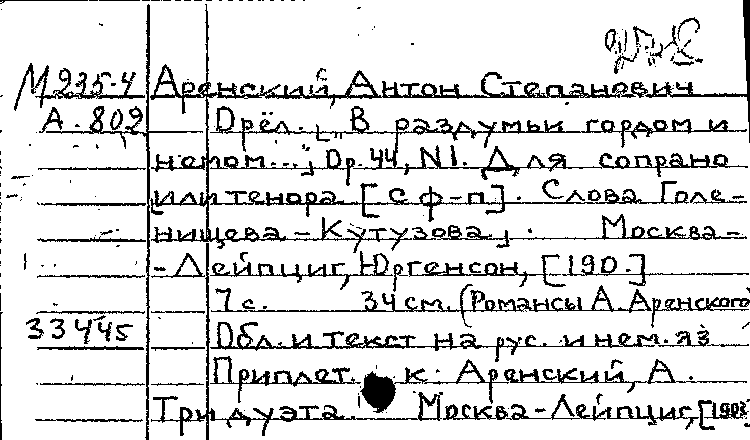 М235-4 Аренский, Антон Степанович
А.802 Орёл. „В раздумьи гордом и
немом...“, Op. 44, N1. Для сопрано
или тенора [с ф-п]. Слова Голе-
нищева-Кутузова. Москва-
-Лейпциг, Юргенсон, [190.]
7 с. 34 см. (Романсы А. Аренского
33445 Обл. и текст на рус. и нем. яз
Приплет. к: Аренский, А.
Три дуэта. Москва-Лейпциг, [190